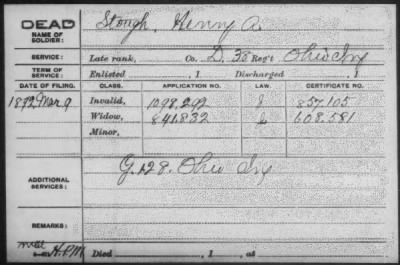 DEAD Stough, Henry A.
NAME OF SOLDIER:
SERVICE: Late rank, Co. D, 38 Reg't Ohio Inf
TERM OF SERVICE: Enlisted , 1 Discharged , 1
DATE OF FILING. CLASS. APPLICATION NO. LAW. CERTIFICATE NO.
1892 Mar 9 Invalid, 1098.292 J 857.105
Widow, 841.832 608.581
Minor,
ADDITIONAL SERVICES: G. 128. Ohio Inf
REMARKS:
Died , 1 , at